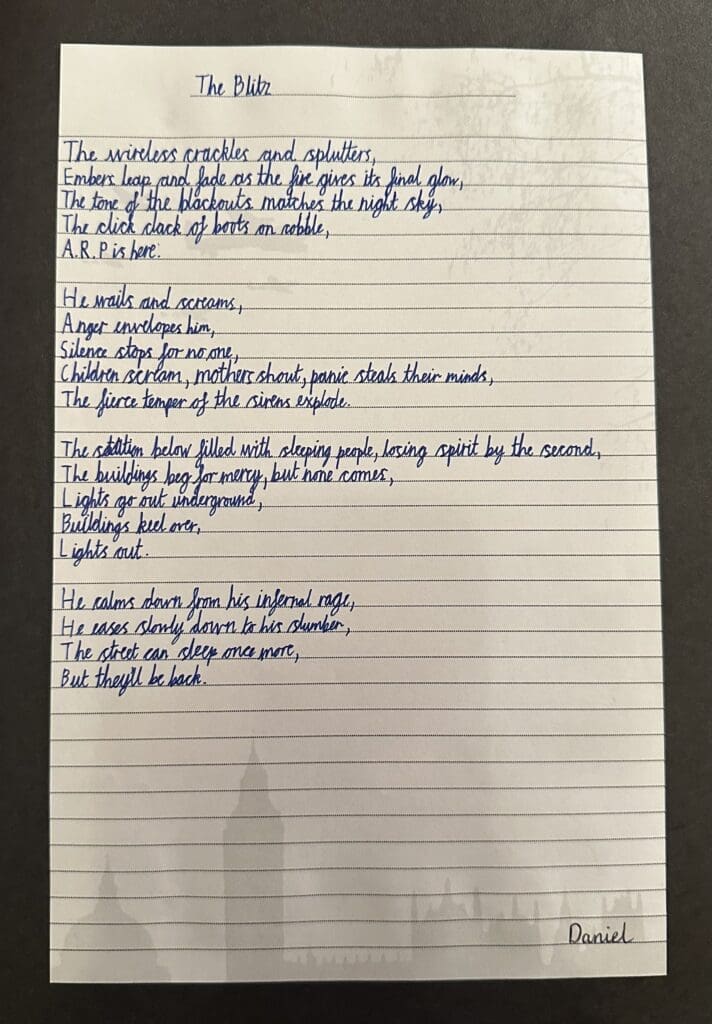 The Blitz
The wireless crackles and splutters,
Embers leap and fade as the fire gives its final glow,
The tone of the blackouts matches the night sky,
The click clack of boots on cobble,
A.R.P is here.
He wails and screams,
Anger envelopes him,
Silence stops for no one,
Children scream, mothers shout, panic steals their minds,
The fierce temper of the sirens explode.
The station below filled with sleeping people, losing spirit by the second,
The buildings beg for mercy, but none comes,
Lights go out underground,
Buildings keel over,
Lights out.
He calms down from his infernal rage,
He eases slowly down to his slumber,
The street can sleep once more,
But they'll be back.
Daniel